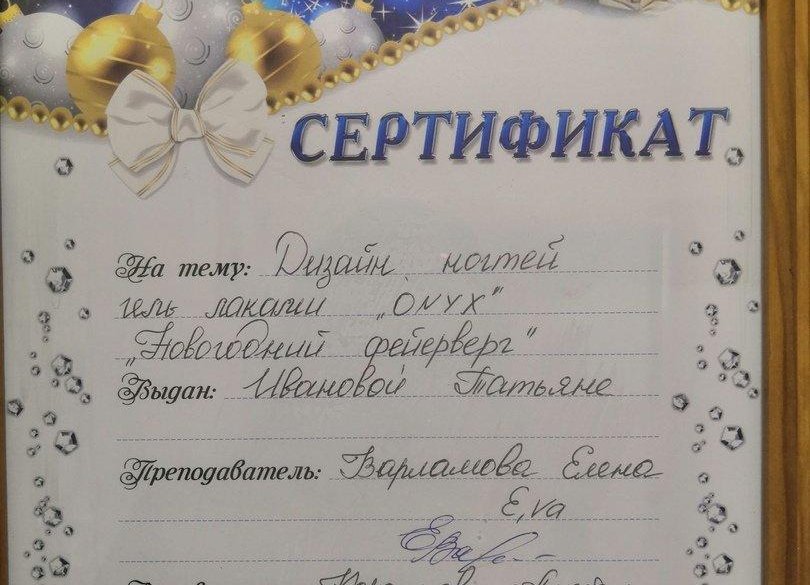 СЕРТИФИКАТ
На тему: Дизайн ногтей
гель лаками „ONYX"
„Новогодний фейерверг"
Выдан: Ивановой Татьяне
Преподаватель: Варламова Елена
E,va